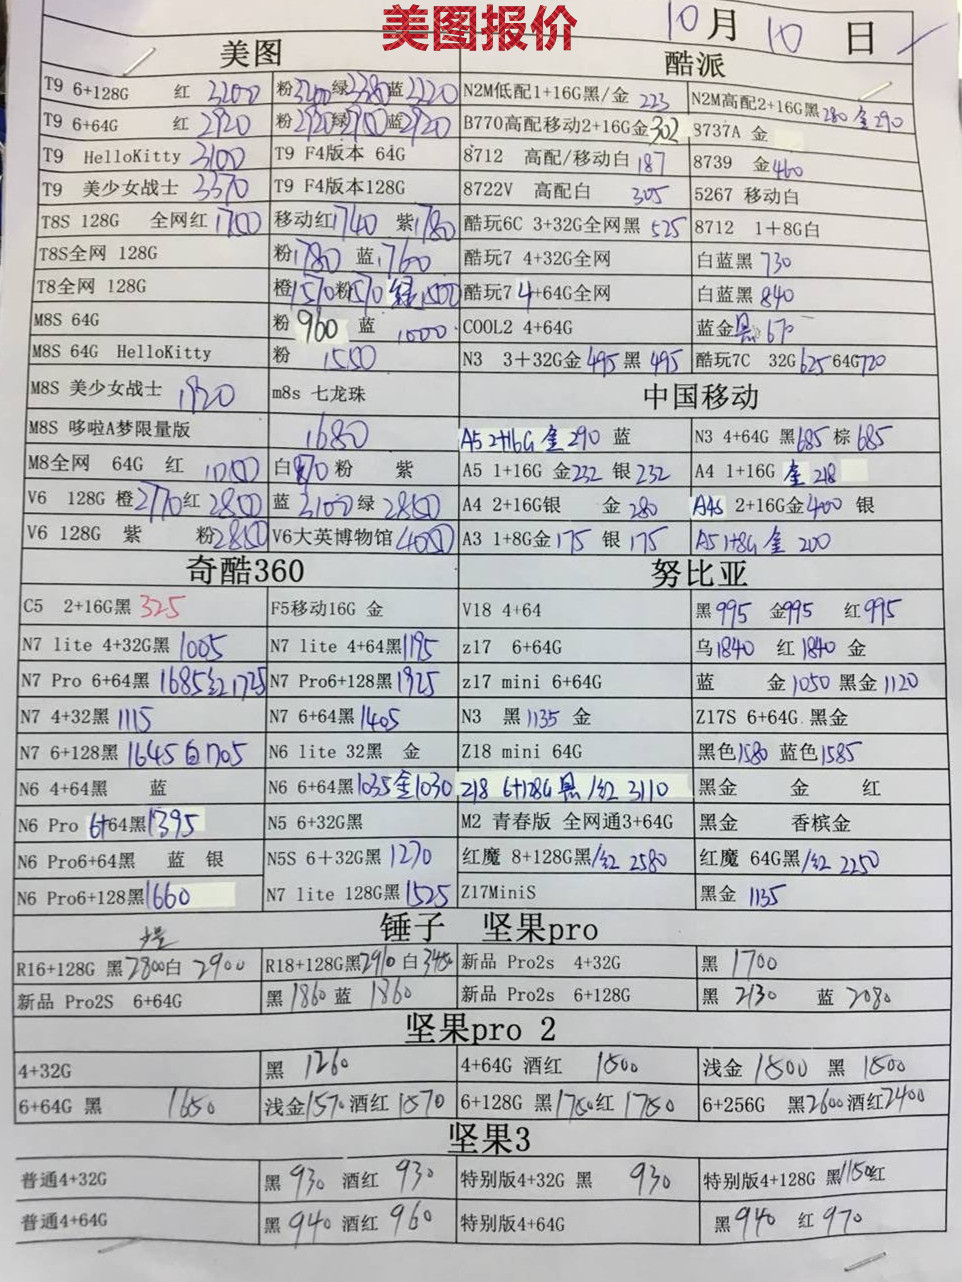 美图报价
10月10日
美图 酷派
T9 6+128G 红 3200 粉3200绿3380蓝3220 N2M低配1+16G黑/金 223 N2M高配2+16G黑280 金290
T9 6+64G 红 2920 粉2920 蓝2920 B770高配移动2+16G金302 8737A 金
T9 HelloKitty 3100 T9 F4版本 64G 8712 高配/移动白 187 8739 金460
T9 美少女战士 3370 T9 F4版本128G 8722V 高配白 305 5267 移动白
T8S 128G 全网红 1700 移动红1740 紫1780 酷玩6C 3+32G全网黑 525 8712 1+8G白
T8S全网 128G 粉1780 蓝1760 酷玩7 4+32G全网 白蓝黑 730
T8全网 128G 橙1570粉1570 绿1500 酷玩7 4+64G全网 白蓝黑 840
M8S 64G 粉 960 蓝 1000 COOL2 4+64G 蓝金黑 670
M8S 64G HelloKitty 粉 1550 N3 3+32G金 495 黑 495 酷玩7C 32G625 64G720
M8S 美少女战士 1920 m8s 七龙珠 中国移动
M8S 哆啦A梦限量版 1680 A5 2+16G 金 290 蓝 N3 4+64G 黑685 棕 685
M8全网 64G 红 白 粉 紫 A5 1+16G 金232 银 232 A4 1+16G 金 218
V6 128G 橙2770红 2800 蓝 3100 绿 2850 A4 2+16G银 金 280 A4s 2+16G金400 银
V6 128G 紫 粉2850 V6大英博物馆4050 A3 1+8G金175 银 175 A5 1+8G 金 200
奇酷360 努比亚
C5 2+16G黑 325 F5移动16G 金 V18 4+64 黑995 金995 红995
N7 lite 4+32G黑 1005 N7 lite 4+64黑1195 z17 6+64G 乌1840 红 1840 金
N7 Pro 6+64黑 1685红1725 N7 Pro6+128黑1925 z17 mini 6+64G 蓝 金1050 黑金1120
N7 4+32黑 1115 N7 6+64黑1405 N3 黑1135 金 Z17S 6+64G 黑金
N7 6+128黑 1645 白1705 N6 lite 32黑 金 Z18 mini 64G 黑色1580 蓝色1585
N6 4+64黑 蓝 N6 6+64黑1035金1030 Z18 6+128G 黑/红 3110 黑金 金 红
N6 Pro 6+64黑1395 N5 6+32G黑 M2 青春版 全网通3+64G 黑金 香槟金
N6 Pro6+64黑 蓝 银 N5S 6+32G黑 1270 红魔 8+128G黑/红 2580 红魔 64G黑/红 2250
N6 Pro6+128黑1660 N7 lite 128G黑1525 Z17MiniS 黑金 1135
锤子 坚果pro
R16+128G 黑2800白 2900 R18+128G黑2910 白3450 新品 Pro2s 4+32G 黑 1700
新品 Pro2S 6+64G 黑 1860 蓝 1860 新品 Pro2s 6+128G 黑 2130 蓝 2080
坚果pro 2
4+32G 黑 1260 4+64G 酒红 1500 浅金 1500 黑 1500
6+64G 黑 1650 浅金1570 酒红 1570 6+128G 黑1750红 1750 6+256G 黑2600酒红2400
坚果3
普通4+32G 黑 930 酒红 930 特别版4+32G 黑 930 特别版4+128G 黑1150红
普通4+64G 黑 940 酒红 960 特别版4+64G 黑 940 红 970